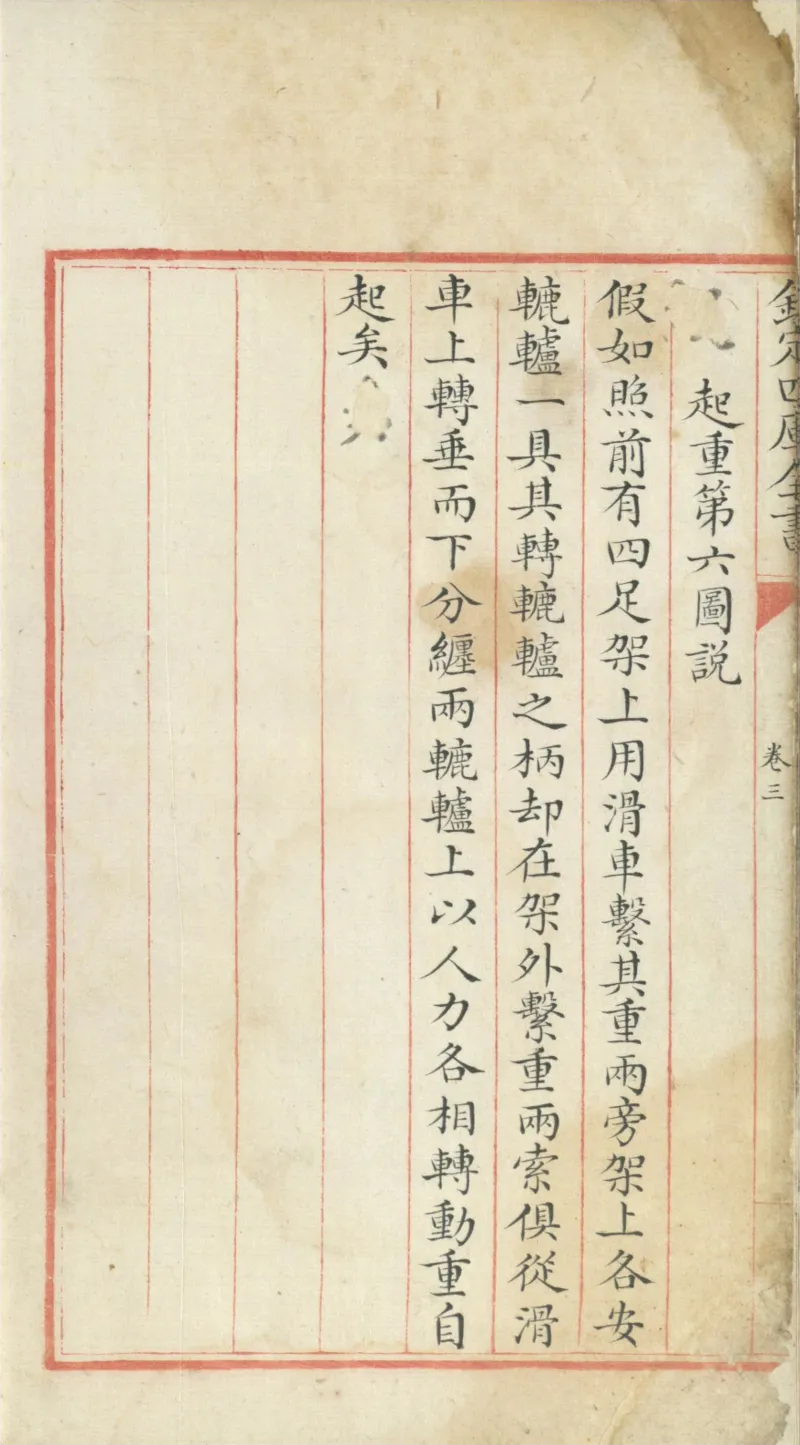 欽定四庫全書
卷三
起重第六圖説
假如照前有四足架上用滑車繫其重兩旁架上各安
轆轤一具其轉轆轤之柄却在架外繫重兩索俱從滑
車上轉垂而下分纒兩轆轤上以人力各相轉動重自
起矣